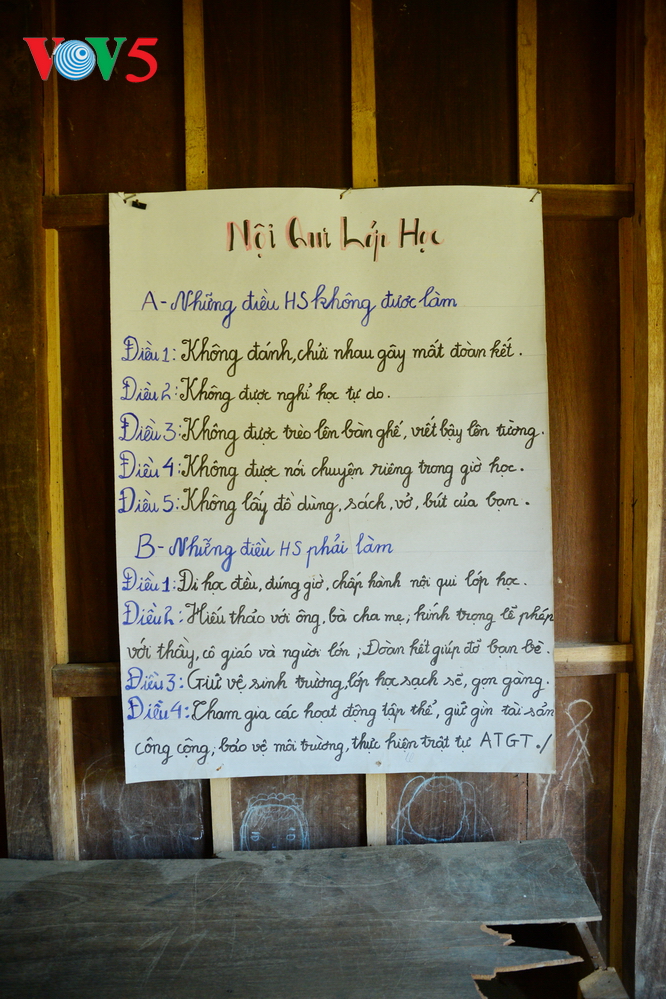 VOV5
Nội Qui Lớp Học
A- Những điều HS không được làm
Điều 1: Không đánh, chửi nhau gây mất đoàn kết.
Điều 2: Không được nghỉ học tự do.
Điều 3: Không được trèo lên bàn ghế, viết bậy lên tường.
Điều 4: Không được nói chuyện riêng trong giờ học.
Điều 5: Không lấy đồ dùng, sách, vở, bút của bạn.
B- Những điều HS phải làm
Điều 1: Đi học đều, đúng giờ, chấp hành nội qui lớp học.
Điều 2: Hiếu thảo với ông, bà cha mẹ; kính trọng lễ phép
với thầy, cô giáo và người lớn; Đoàn kết giúp đỡ bạn bè.
Điều 3: Giữ vệ sinh trường, lớp học sạch sẽ, gọn gàng.
Điều 4: Tham gia các hoạt động tập thể, giữ gìn tài sản
công cộng, bảo vệ môi trường, thực hiện trật tự ATGT./